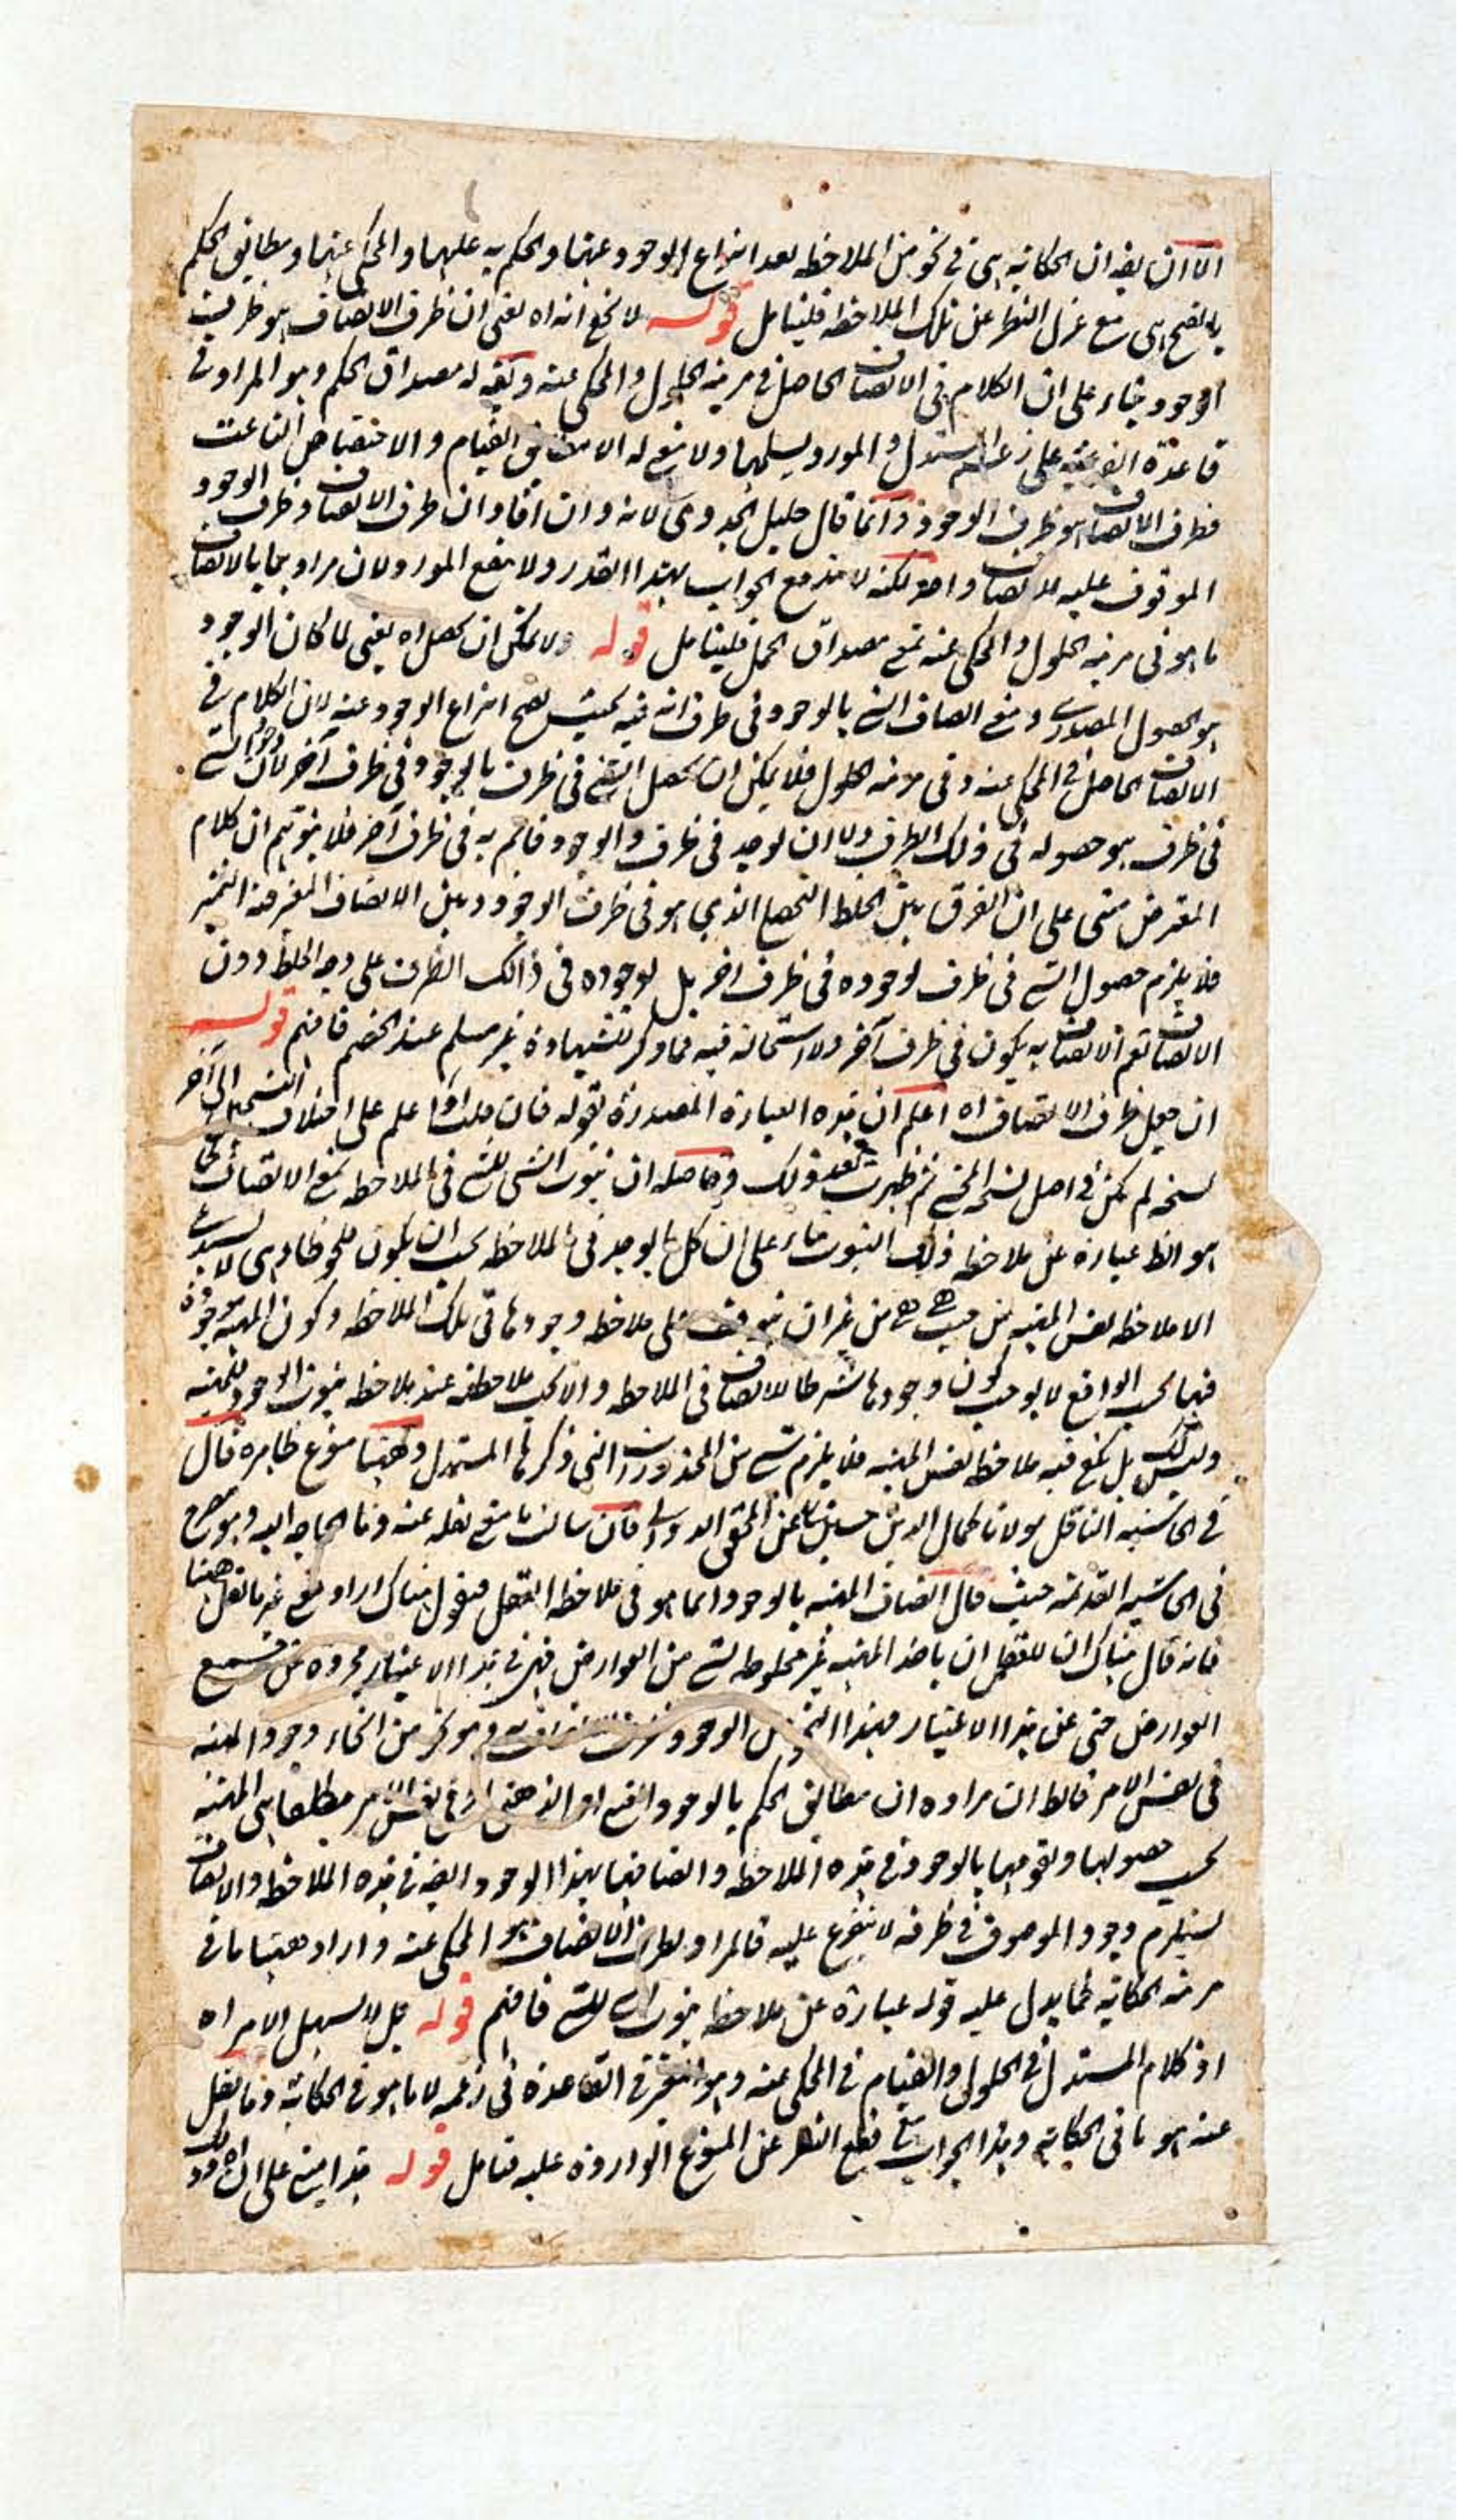 الا ان يقه ان الحكاية هى فى نحو من الملاحظه بعد انتزاع الوجود عنها والحكم به عليها والمحكى عنها ومطابق الحكم
هى مع عزل النظر عن تلك الملاحظه فليتامل قوله لا نخع انه اه يعنى ان ظرف الاتصاف هو ظرف
الوجود بناء على ان الكلام فى الاتصاف الحاصل فى مرتبه الحلول والمحكى عنه وكونه مصداق الحكم وهو المراد فى
قاعدة الفرعيه على زعم المستدل والمورد يسلمها ولا القيام والاختصاص الناعت
فظرف الاتصاف هو ظرف الوجود وانما قال قليل الجدوى لانه وان افاد ان ظرف الاتصاف وظرف الوجود
الموقوف عليه للاتصاف واحد لكنه لا يندفع الجواب بهذا القدر ولا ينفع المورد لان مراد بالاتصاف
ما هو فى مرتبه الحلول والمحكى عنه مصداق الحمل فليتامل قوله ولا يمكن ان يحصل اه يعنى لما كان الوجود
هو الحصول المصدرى ومعنى اتصاف الشى بالوجود فى ظرف انه فيه بحيث يصح انتزاع الوجود عنه لان الكلام فى
الاتصاف الحاصل فى المحكى عنه وفى مرتبه الحلول فلا يمكن ان يحصل الشى فى ظرف بالوجود فى ظرف آخر لان وجود الشى
فى ظرف هو حصوله فى ذلك الظرف ولا ان يوجد فى ظرف والوجود قائم به فى ظرف آخر فلا يتوهم ان كلام
المعترض مبنى على ان الفرق بين الخلط الذى هو فى ظرف الوجود وبين الاتصاف المعتبر فيه التميز
فلا يلزم حصول الشى فى ظرف لوجوده فى ظرف اخر بل لوجوده فى ذالك الظرف على وجه الخلط دون
الاتصاف نعم الاتصاف به يكون فى ظرف آخر ولا استحاله فيه فما ذكر للشهادة غير مسلم عند الخصم فافهم قوله
ان جعل ظرف الاتصاف اه اعلم ان هذه العبارة المصدرة بقوله فان قلت اه اعلم على اختلاف النسخ الى آخر
نسخه لم يكن فى اصل نسخة المحشى ثم ظهرت بعد ذلك وحاصله ان ثبوت الشى للشى فى الملاحظه مع الاتصاف
هو الظ عبارة عن ملاحظه ذلك الثبوت بناء على ان كل ما يوجد فى الملاحظه يجب ان يكون ملحوظا وهى لا يستدعى
الا ملاحظه نفس المهيه من حيث هى هى من غير ان يتوقف على ملاحظه وجودها فى تلك الملاحظه وكون المهيه موجودة
فيها بحسب الواقع لا يوجب كون وجودها شرطا للاتصاف فى الملاحظه والا يجب ملاحظته عند ملاحظه ثبوت الوجود للمهيه
وليس كذلك بل يكفى فيه ملاحظه نفس المهيه فلا يلزم شى من المحذورات التى ذكرها المستدل وههنا منوع ظاهرة قال
فى الحاشيه الناقل مولانا كمال الدين حسين عن المحقق الدوانى فان نقله عنه وما الحاجه اليه وهو مصرح
فى الحاشيه القديمه حيث قال اتصاف المهيه بالوجود انما هو فى ملاحظه العقل فنقول هناك اراد معنى غير ما نقل ههنا
فانه قال هناك ان للعقل ان ياخذ المهيه غير مخلوطه بشى من العوارض فهى فى هذا الاعتبار مجرده من جميع
العوارض حتى عن هذا الاعتبار فهذا النحو من الوجود ظرف الاتصاف به وهو نحو من انحاء وجود المهيه
فى نفس الامر فالظ ان مراده ان مطابق الحكم بالوجود او الذهنى او فى نفس الامر مطلقا هى المهيه
بحسب حصولها وتقومها بالوجود فى هذه الملاحظه واتصافها بهذا الوجود ايضه فى هذه الملاحظه والاتصاف
يستلزم وجود الموصوف فى ظرفه لا يتفرع عليه فالمراد بظرف الاتصاف هو المحكى عنه واراد ههنا ما فى
مرتبه الحكايه كما يدل عليه قوله عبارة عن ملاحظه ثبوت الشى للشى فافهم قوله بل لا يسهل الامر اه
اذ كلام المستدل فى الحلول والقيام فى المحكى عنه وهو المعتبر فى القاعدة فى زعمه لا ما هو فى الحكاية وما نقل
عنه هو ما فى الحكايه وهذا الجواب مع قطع النظر عن المنوع الواردة عليه فتامل قوله هذا مبنى على ان